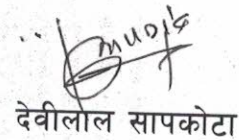 देवीलाल सापकोटा